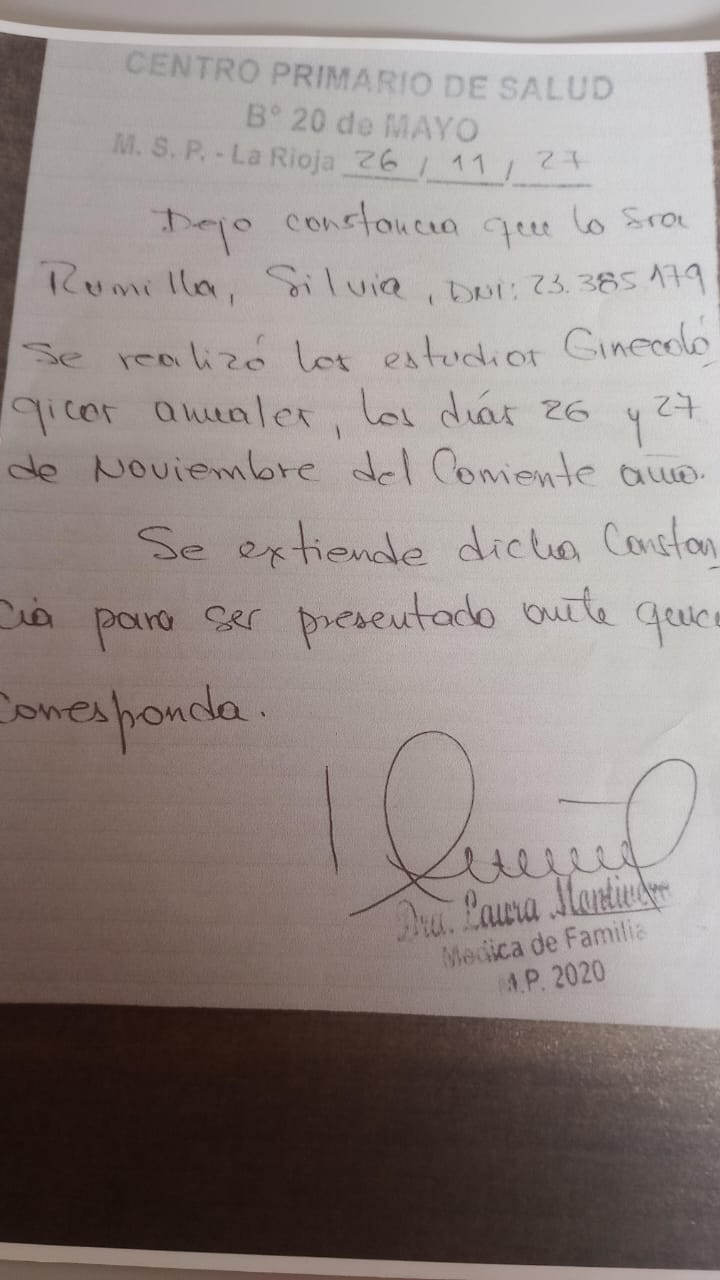 CENTRO PRIMARIO DE SALUD
B° 20 de MAYO
M. S. P. - La Rioja 26 / 11 / 27
Dejo constancia que la Sra
Rumilla, Silvia, DNI: 23.385.179
Se realizó los estudios Ginecoló
gicos anuales, los días 26 y 27
de Noviembre del Corriente año.
Se extiende dicha Constan
cia para ser presentado ante quien
Corresponda.
Dra. Laura
Medica de Familia
M.P. 2020